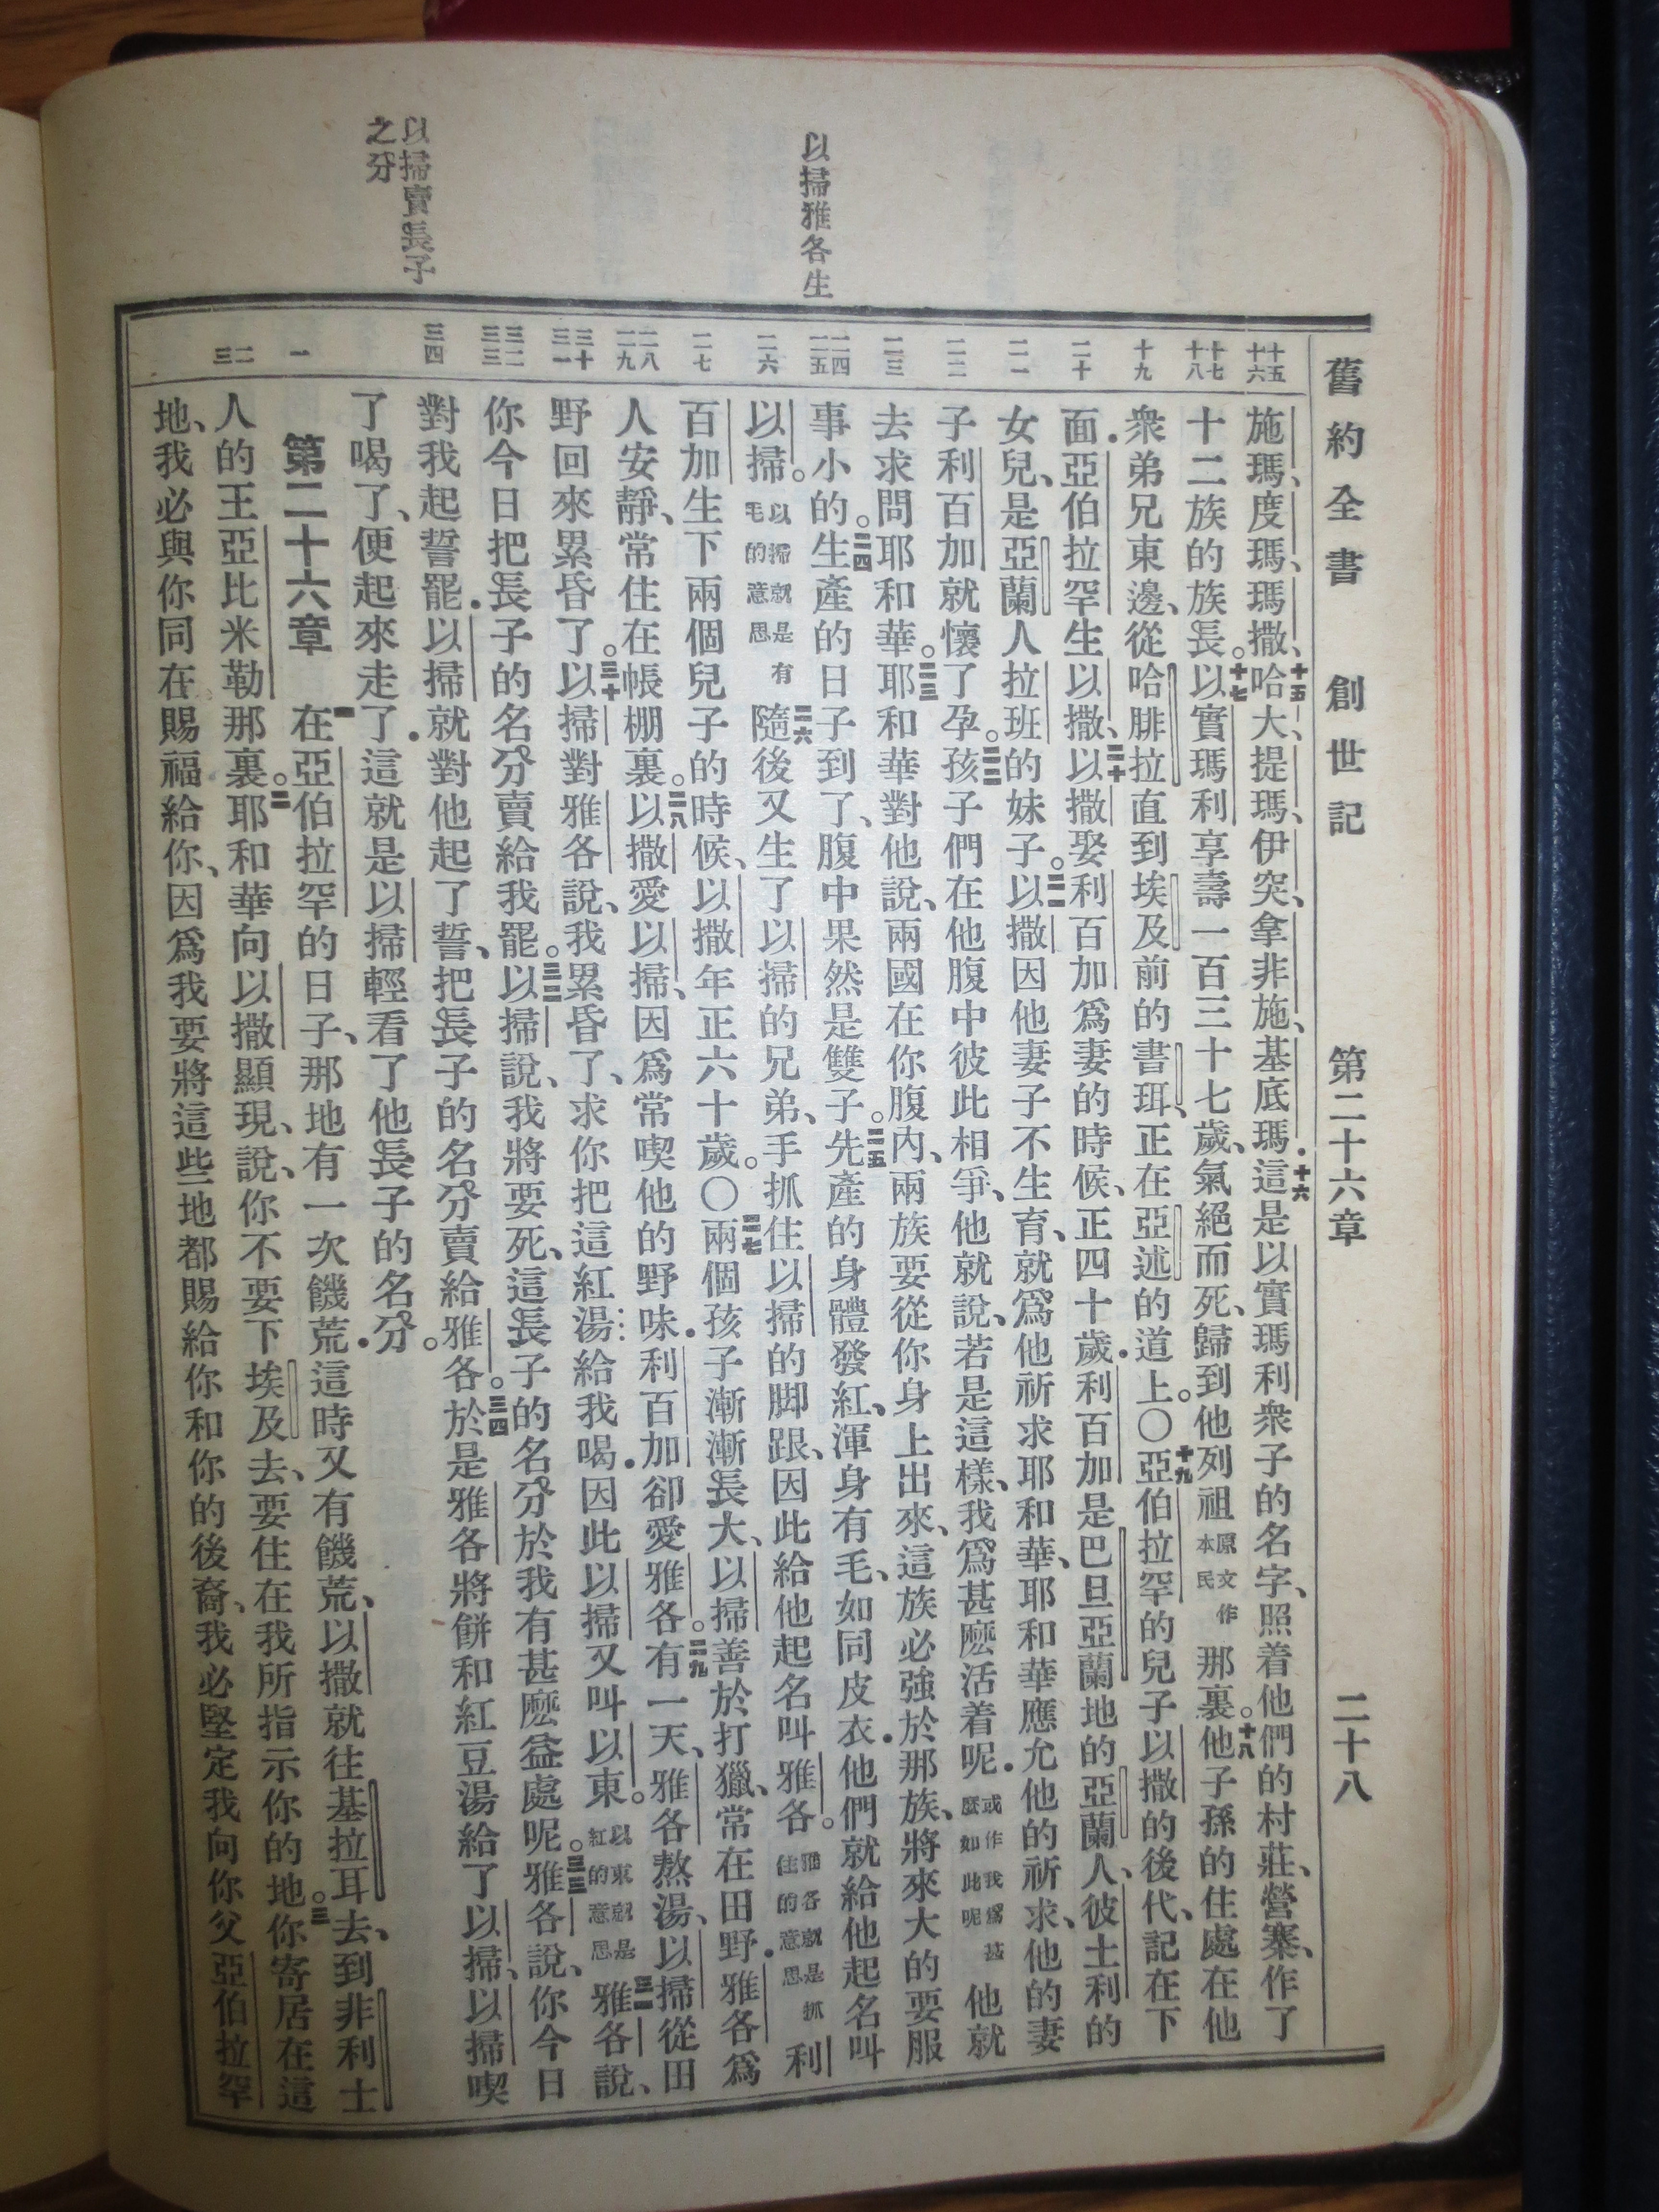 舊約全書 創世記 第二十六章 二十八
以掃雅各生
以掃賣長子
之分
十五
十六
十七
十八
十九
二十
二一
二二
二三
二四
二五
二六
二七
二八
二九
三十
三一
三二
三三
三四
一
二
三
施瑪、度瑪、瑪撒、十五哈大、提瑪、伊突、拿非施、基底瑪．十六這是以實瑪利衆子的名字、照着他們的村莊、營寨、作了
十二族的族長。十七以實瑪利享壽一百三十七歲、氣絕而死、歸到他列祖原文作本民那裏。十八他子孫的住處在他
衆弟兄東邊、從哈腓拉直到埃及前的書珥、正在亞述的道上。〇十九亞伯拉罕的兒子以撒的後代、記在下
面．亞伯拉罕生以撒、二十以撒娶利百加爲妻的時候、正四十歲．利百加是巴旦亞蘭地的亞蘭人、彼土利的
女兒、是亞蘭人拉班的妹子。二一以撒因他妻子不生育、就爲他祈求耶和華、耶和華應允他的祈求、他的妻
子利百加就懷了孕。二二孩子們在他腹中彼此相爭、他就說、若是這樣、我爲甚麽活着呢．或作我爲甚麽如此呢他就
去求問耶和華。二三耶和華對他說、兩國在你腹內、兩族要從你身上出來、這族必強於那族、將來大的要服
事小的。二四生產的日子到了、腹中果然是雙子。二五先產的身體發紅、渾身有毛、如同皮衣．他們就給他起名叫
以掃。以掃就是有毛的意思二六隨後又生了以掃的兄弟、手抓住以掃的脚跟、因此給他起名叫雅各。雅各就是抓住的意思利
百加生下兩個兒子的時候、以撒年正六十歲。〇二七兩個孩子漸漸長大、以掃善於打獵、常在田野．雅各爲
人安靜、常住在帳棚裏。二八以撒愛以掃、因爲常喫他的野味．利百加卻愛雅各。二九有一天、雅各熬湯、以掃從田
野回來累昏了。三十以掃對雅各說、我累昏了、求你把這紅湯給我喝．因此以掃又叫以東。以東就是紅的意思三一雅各說、
你今日把長子的名分賣給我罷。三二以掃說、我將要死、這長子的名分於我有甚麽益處呢。三三雅各說、你今日
對我起誓罷．以掃就對他起了誓、把長子的名分賣給雅各。三四於是雅各將餅和紅豆湯給了以掃、以掃喫
了喝了、便起來走了．這就是以掃輕看了他長子的名分。
第二十六章 一在亞伯拉罕的日子、那地有一次饑荒．這時又有饑荒、以撒就往基拉耳去、到非利士
人的王亞比米勒那裏。二耶和華向以撒顯現、說、你不要下埃及去、要住在我所指示你的地。三你寄居在這
地、我必與你同在、賜福給你、因爲我要將這些地都賜給你和你的後裔、我必堅定我向你父亞伯拉罕